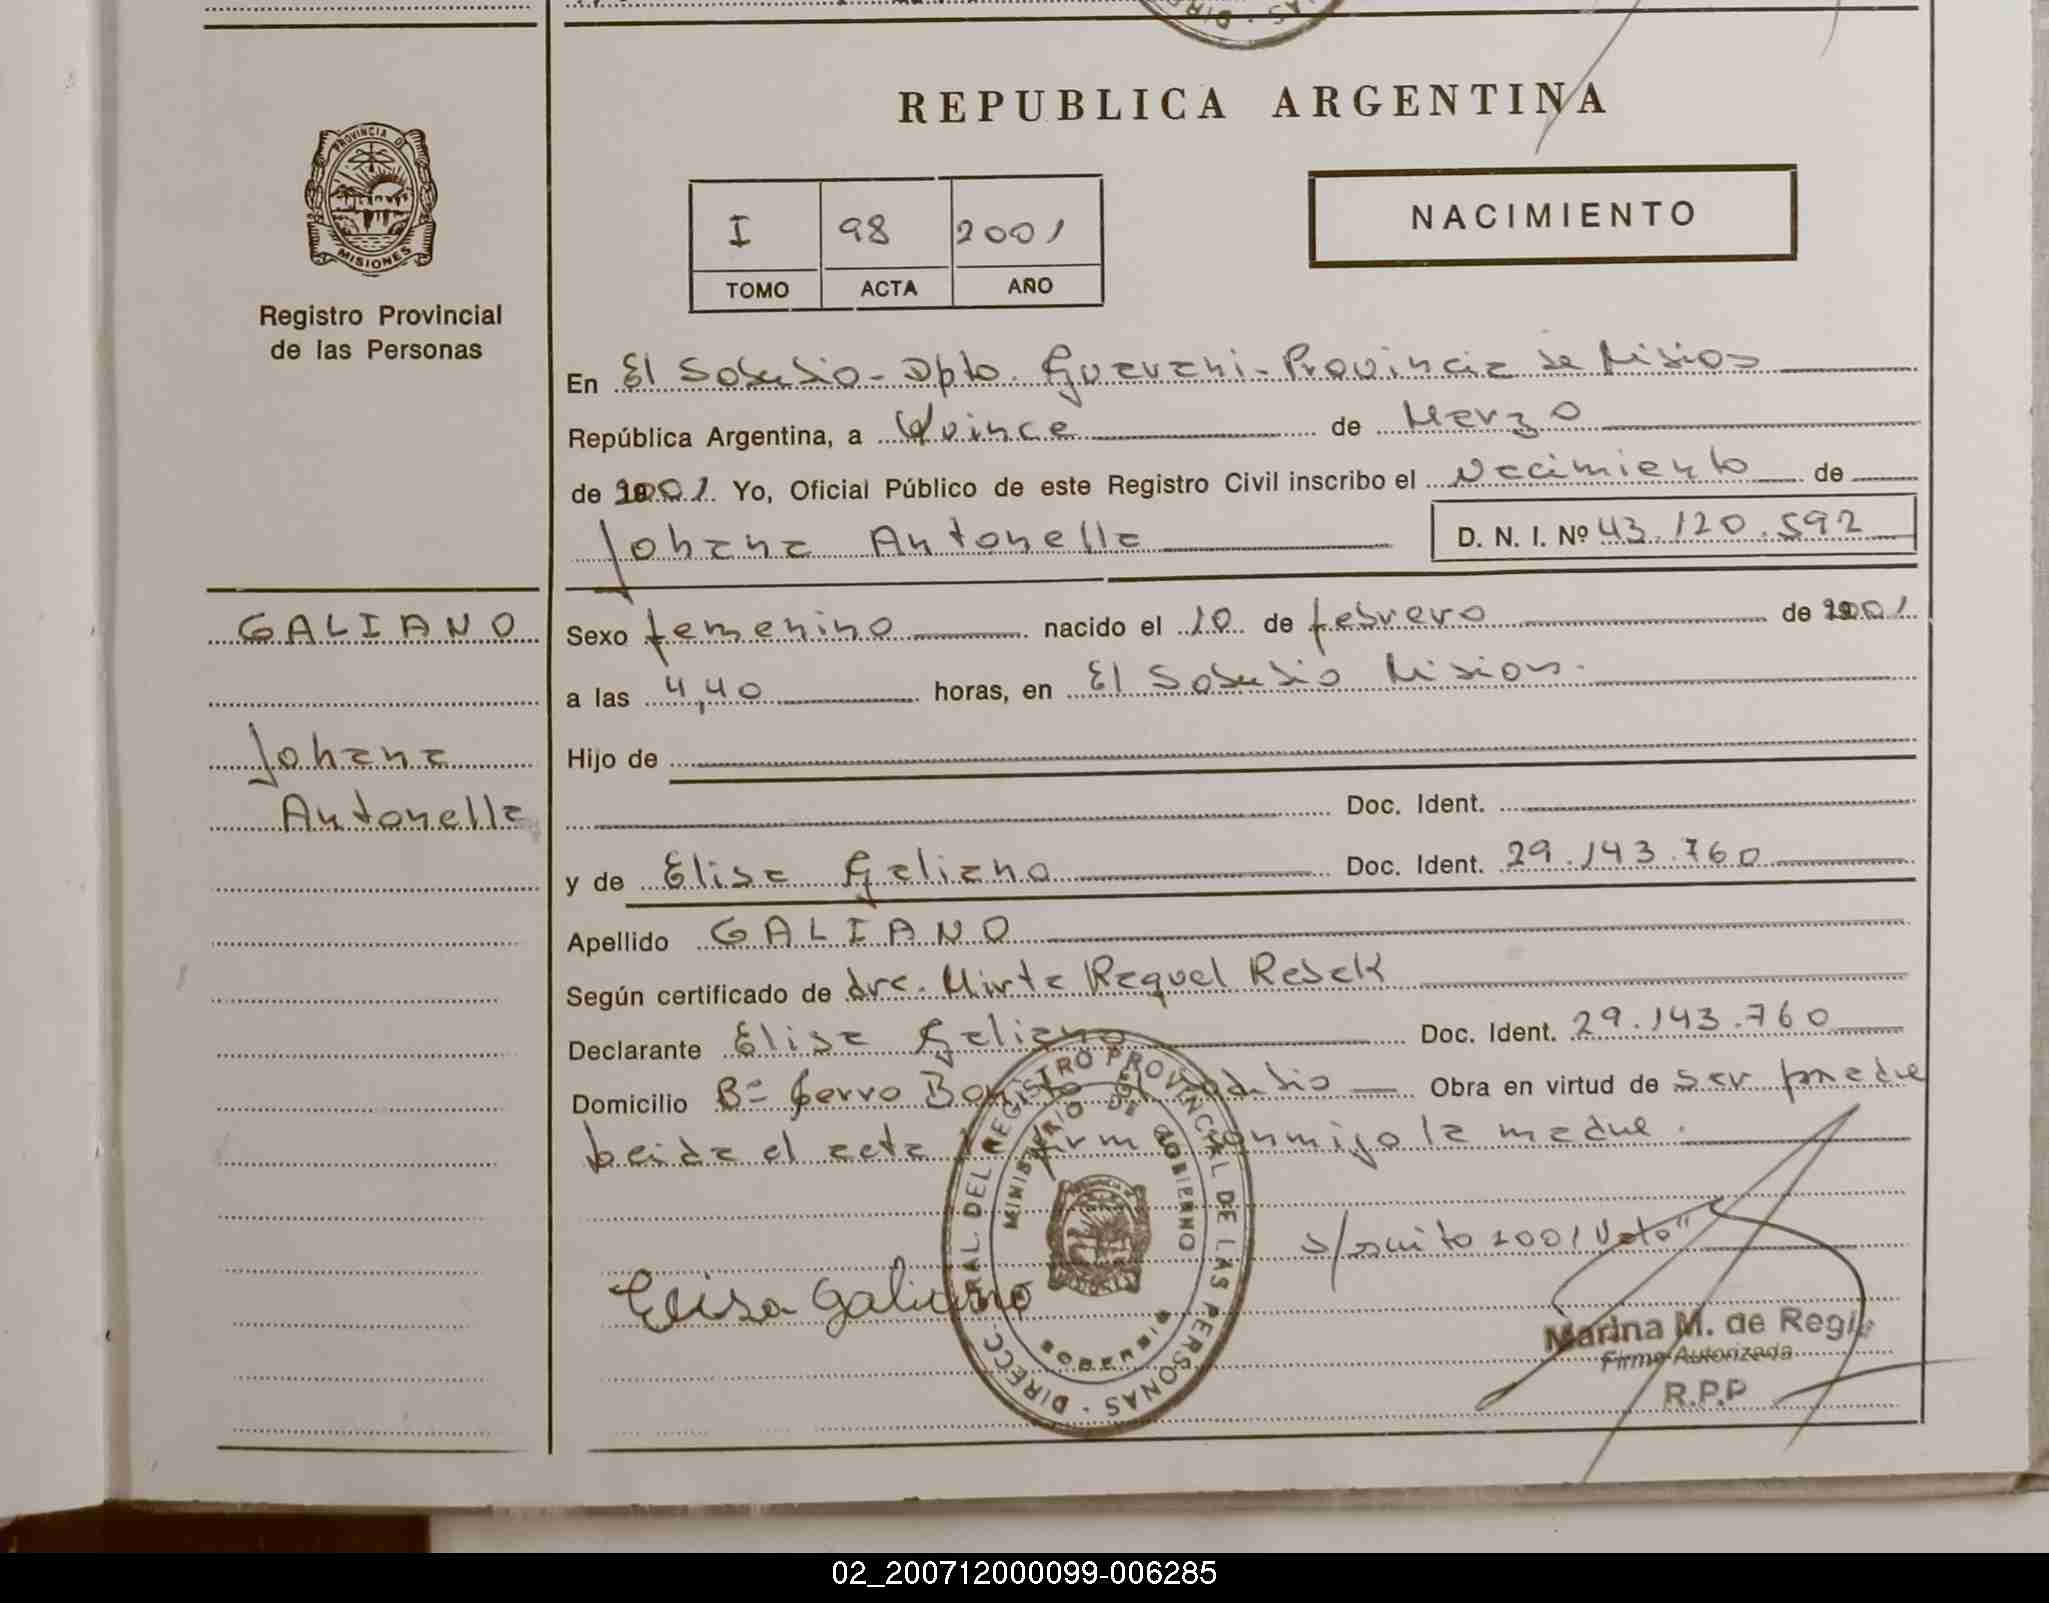 REPUBLICA ARGENTINA
PROVINCIA DE
MISIONES
Registro Provincial
de las Personas
I 98 2001
TOMO ACTA AÑO
NACIMIENTO
En El Soberbio - Dpto. Guarani - Provincia de Misiones
República Argentina, a Quince de Marzo
de 2001. Yo, Oficial Público de este Registro Civil inscribo el Nacimiento de
Johana Antonella D. N. I. Nº 43.120.592
GALIANO
Johana
Antonella
Sexo femenino nacido el 10 de febrero de 2001
a las 4,40 horas, en El Soberbio Misiones.
Hijo de
Doc. Ident.
y de Elisa Galiano Doc. Ident. 29.143.760
Apellido GALIANO
Según certificado de dra. Mirta Raquel Resek
Declarante Elisa Galiano Doc. Ident. 29.143.760
Domicilio Bº Cerro Bonito El Soberbio Obra en virtud de ser madre
Leida el acta firma conmigo la madre.
s/ 2001 Vale"
Elisa Galiano
DIRECC. GRAL. DEL REGISTRO PROVINCIAL DE LAS PERSONAS
MINISTERIO DE GOBIERNO
SOBERBIO
Marina M. de Regi
Firma Autorizada
R.P.P
02_200712000099-006285